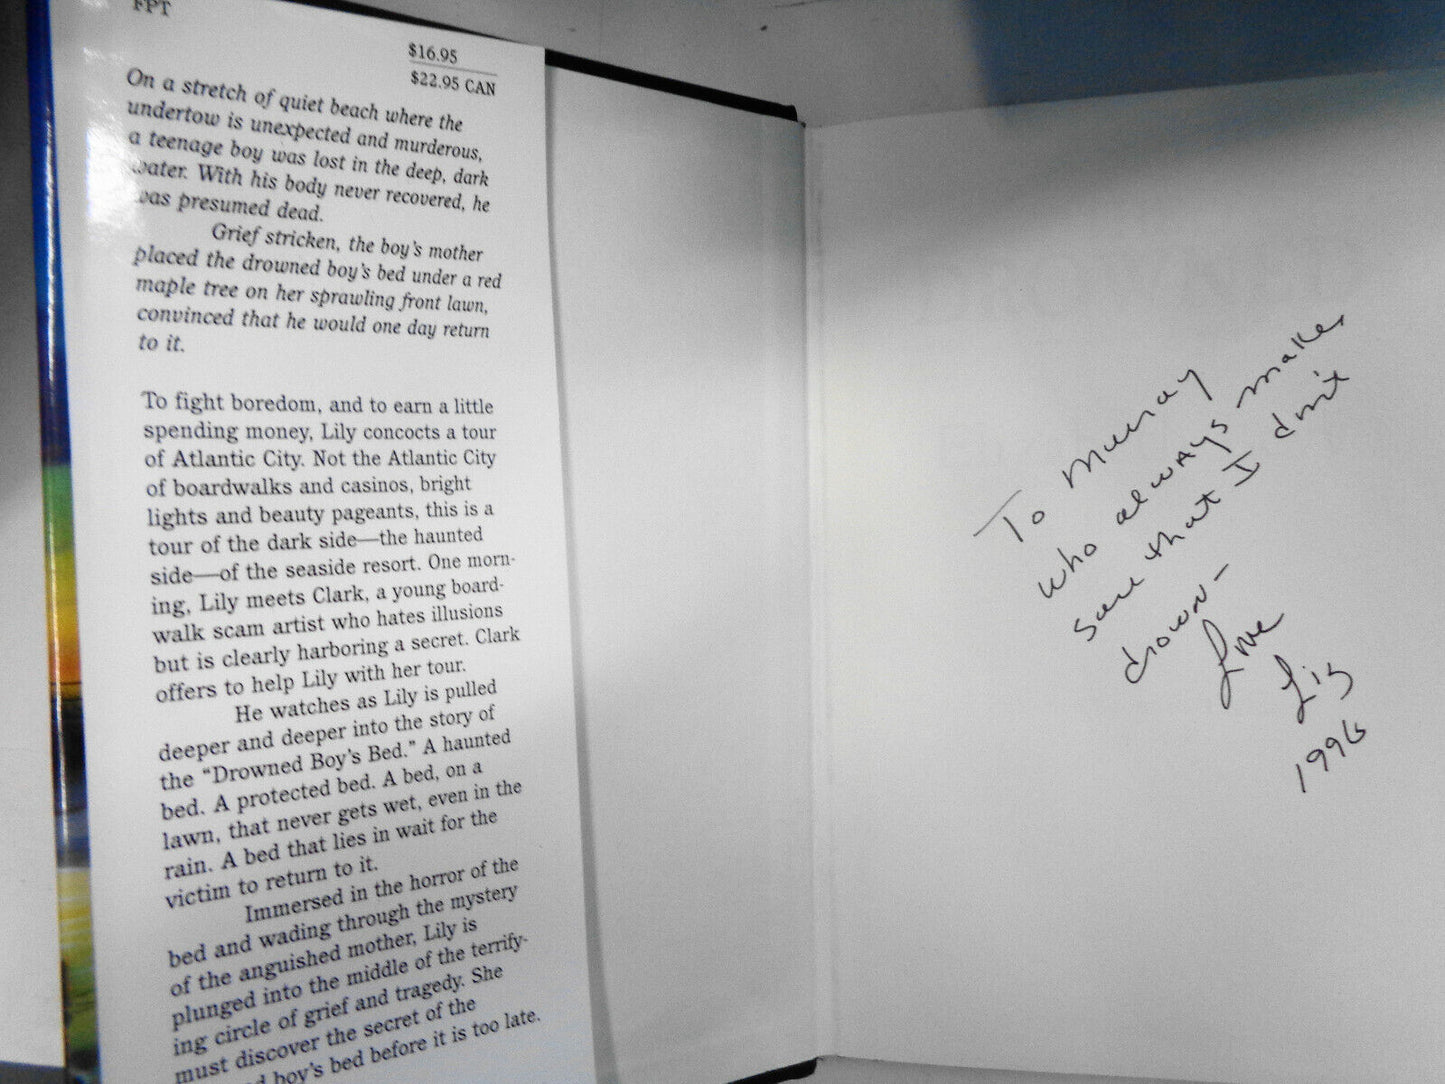 FPT
$16.95
$22.95 CAN
On a stretch of quiet beach where the
undertow is unexpected and murderous,
a teenage boy was lost in the deep, dark
water. With his body never recovered, he
was presumed dead.
Grief stricken, the boy's mother
placed the drowned boy's bed under a red
maple tree on her sprawling front lawn,
convinced that he would one day return
to it.
To fight boredom, and to earn a little
spending money, Lily concocts a tour
of Atlantic City. Not the Atlantic City
of boardwalks and casinos, bright
lights and beauty pageants, this is a
tour of the dark side—the haunted
side—of the seaside resort. One morn-
ing, Lily meets Clark, a young board-
walk scam artist who hates illusions
but is clearly harboring a secret. Clark
offers to help Lily with her tour.
He watches as Lily is pulled
deeper and deeper into the story of
the "Drowned Boy's Bed." A haunted
bed. A protected bed. A bed, on a
lawn, that never gets wet, even in the
rain. A bed that lies in wait for the
victim to return to it.
Immersed in the horror of the
bed and wading through the mystery
of the anguished mother, Lily is
plunged into the middle of the terrify-
ing circle of grief and tragedy. She
must discover the secret of the
boy's bed before it is too late.
To Murray
who always makes
sure that I don't
drown-
Love
Liz
1996